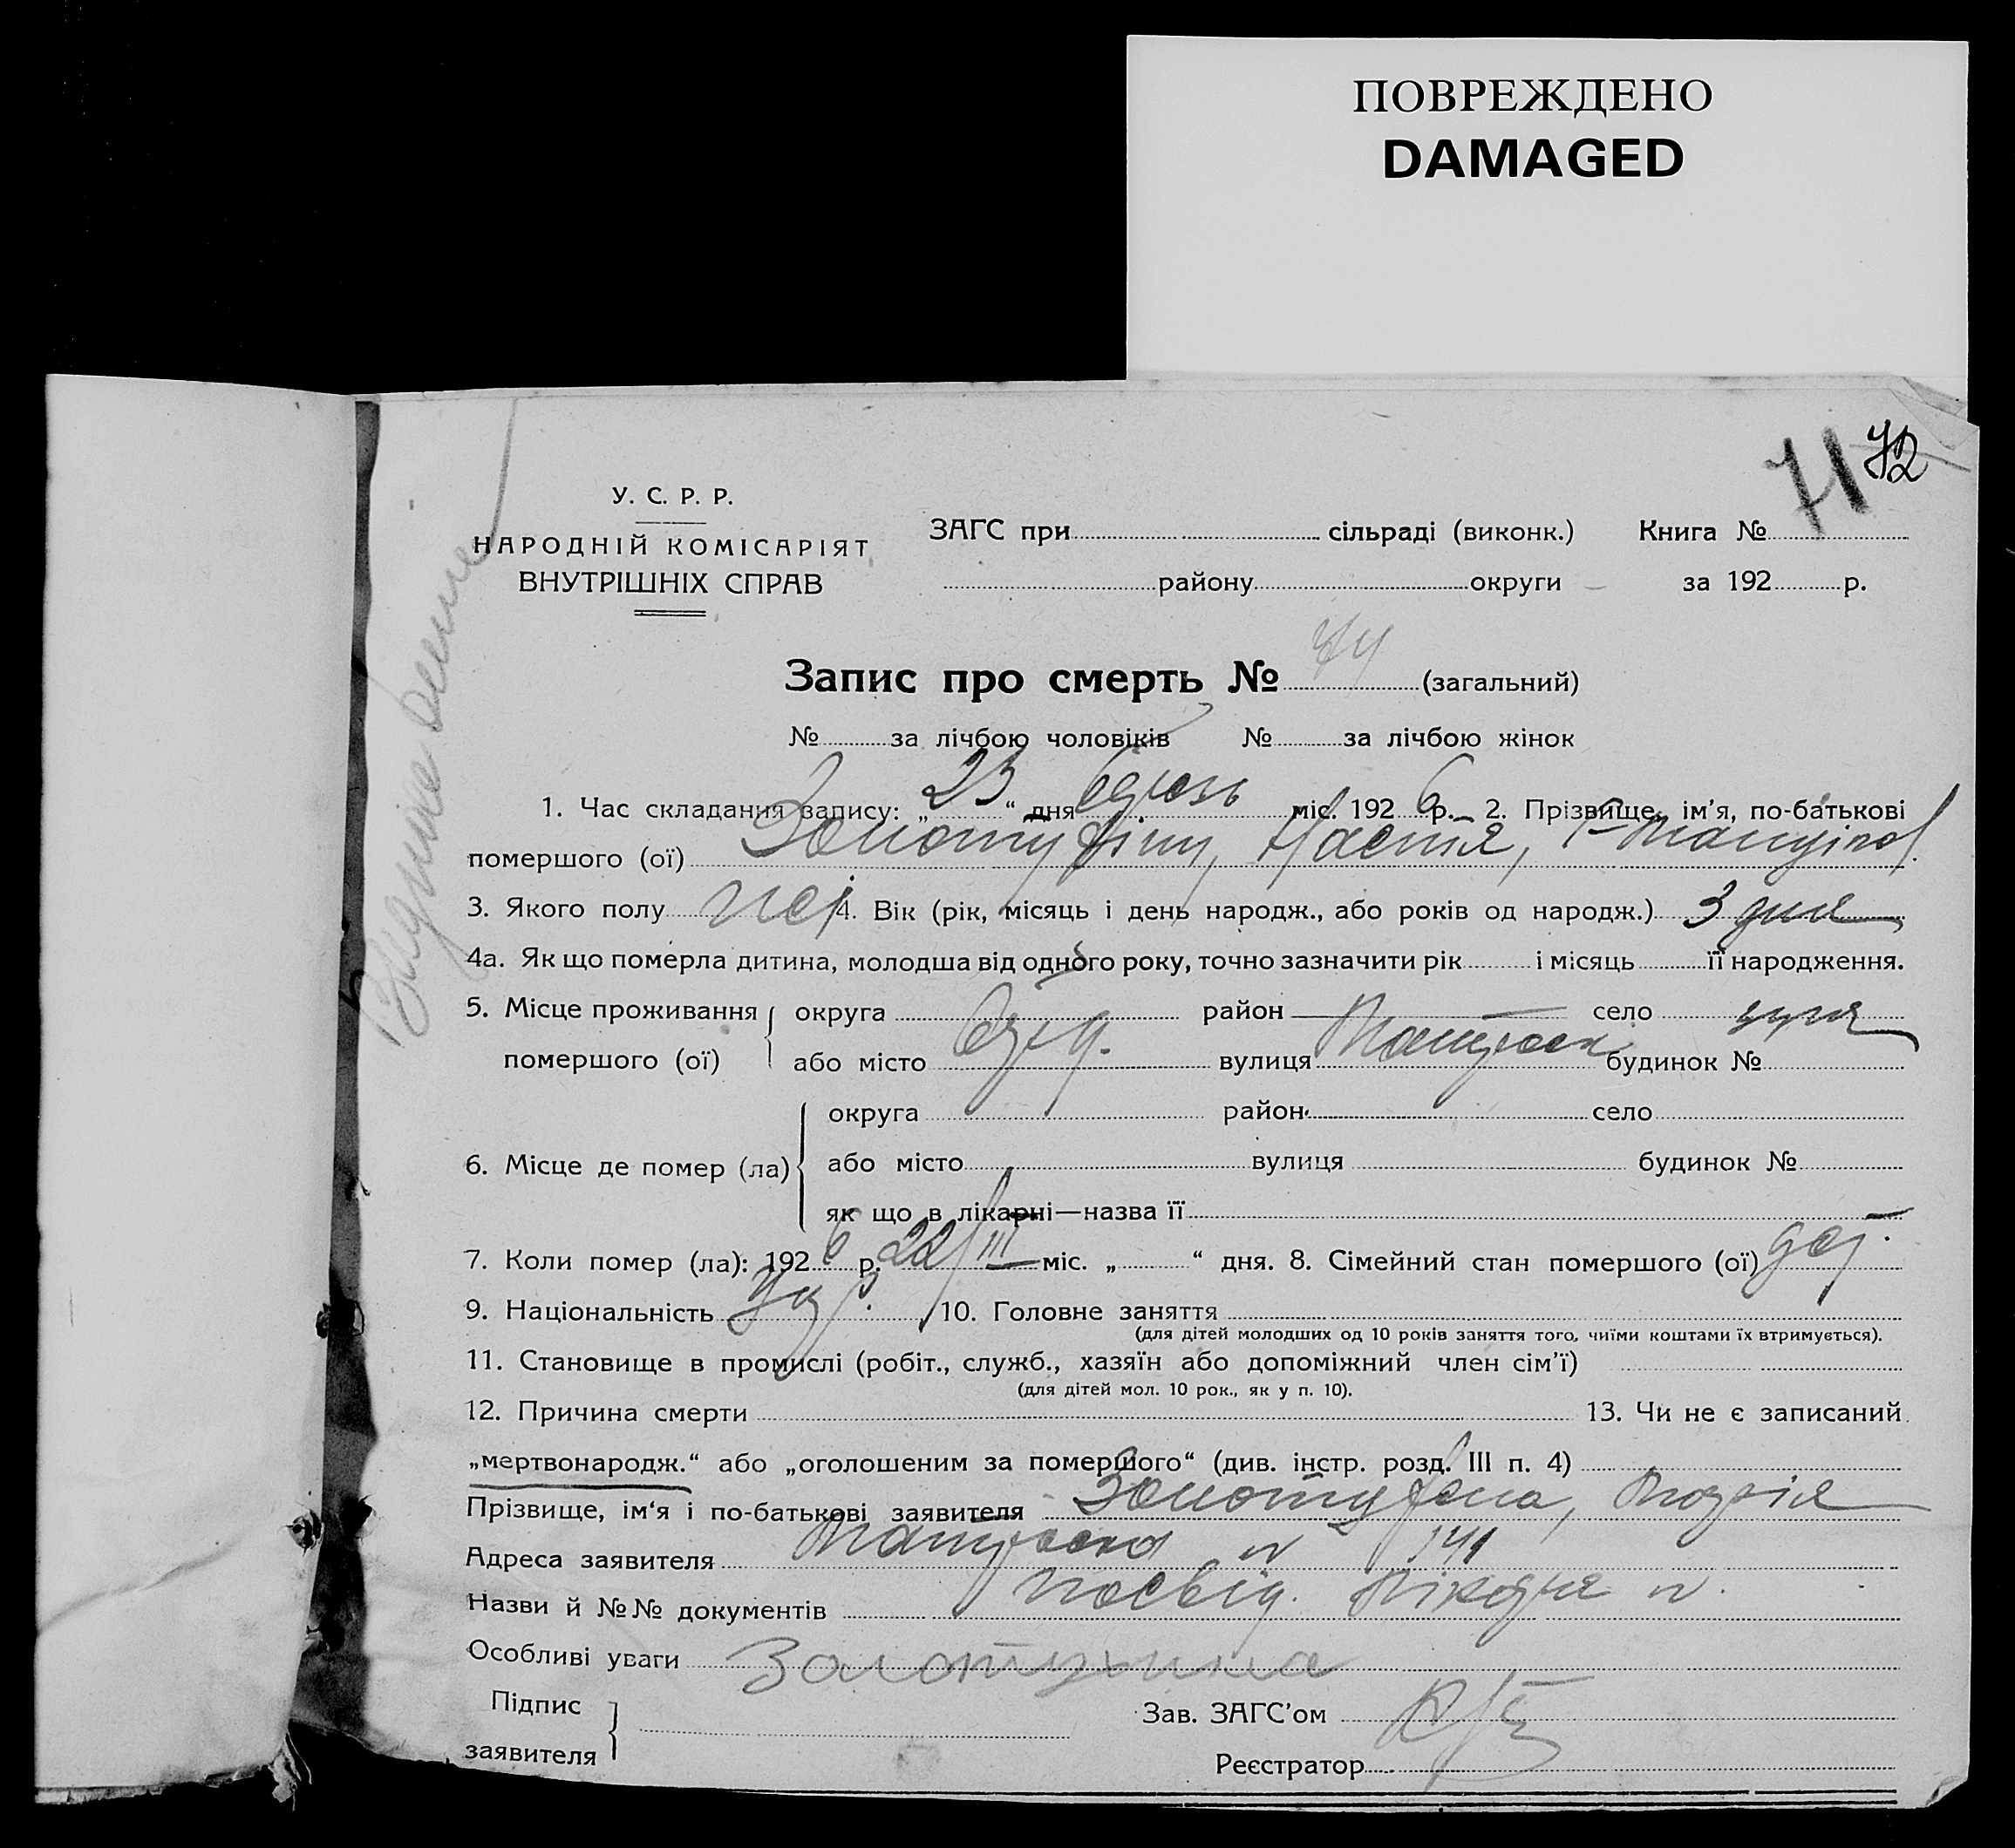 ПОВРЕЖДЕНО
DAMAGED
71 72
У. С. Р. Р.
НАРОДНІЙ КОМІСАРІЯТ
ВНУТРІШНІХ СПРАВ
ЗАГС при сільраді (виконк.) Книга №
району округи за 192 р.
Запис про смерть № 74 (загальний)
№ за лічбою чоловіків № за лічбою жінок
1. Час складання запису: „23“ дня міс. 1926 р. 2. Прізвище, ім'я, по-батькові
помершого (ої) Настя,
3. Якого полу 4. Вік (рік, місяць і день народж., або років од народж.) 3 дня
4а. Як що померла дитина, молодша від одного року, точно зазначити рік і місяць її народження.
5. Місце проживання округа район село
помершого (ої) або місто вулиця будинок №
округа район село
6. Місце де помер (ла) або місто вулиця будинок №
як що в лікарні—назва її
7. Коли помер (ла): 1926 р. 22/III міс. „ “ дня. 8. Сімейний стан помершого (ої)
9. Національність Укр. 10. Головне заняття
(для дітей молодших од 10 років заняття того, чиїми коштами їх втримується).
11. Становище в промислі (робіт., служб., хазяїн або допоміжний член сім'ї)
(для дітей мол. 10 рок., як у п. 10).
12. Причина смерти 13. Чи не є записаний
„мертвонародж.“ або „оголошеним за помершого“ (див. інстр. розд. III п. 4)
Прізвище, ім'я і по-батькові заявителя
Адреса заявителя 141
Назви й №№ документів Посвід.
Особливі уваги Золотухина
Підпис
заявителя
Зав. ЗАГС'ом
Реєстратор